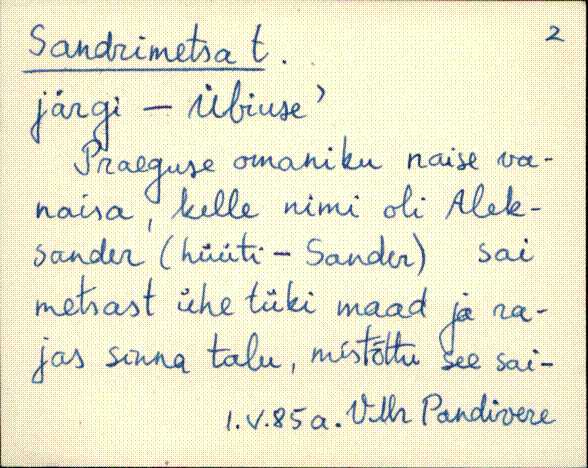 Sandrimetsa t. 2
järgi – Übiuse'
Praeguse omaniku naise va-
naisa, kelle nimi oli Alek-
sander (hüüti – Sander) sai
metsast ühe tüki maad ja ra-
jas sinna talu, mistõttu see sai-
1.V.85a. VMr Pandivere